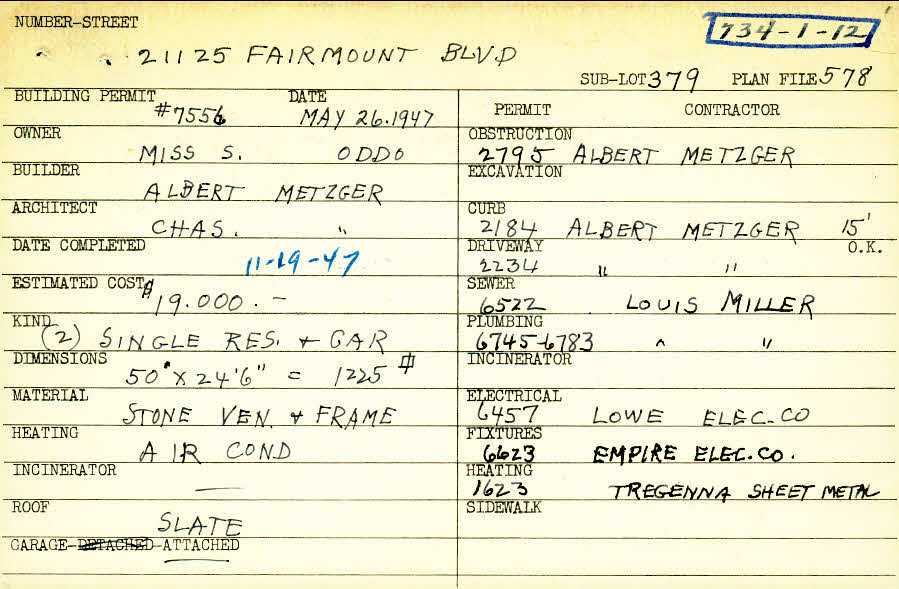 NUMBER-STREET
734-1-12
21125 FAIRMOUNT BLVD
SUB-LOT 379 PLAN FILE 578
BUILDING PERMIT DATE
#7556 MAY 26.1947
OWNER
MISS S. ODDO
BUILDER
ALBERT METZGER
ARCHITECT
CHAS. "
DATE COMPLETED
11-19-47
ESTIMATED COST
$19.000.-
KIND
(2) SINGLE RES. + GAR
DIMENSIONS
50' X 24'6" = 1225
MATERIAL
STONE VEN. + FRAME
HEATING
AIR COND
INCINERATOR
—
ROOF
SLATE
GARAGE-DETACHED-ATTACHED
PERMIT CONTRACTOR
OBSTRUCTION
2795 ALBERT METZGER
EXCAVATION
CURB
2184 ALBERT METZGER 15'
DRIVEWAY O.K.
2234 " "
SEWER
6522 LOUIS MILLER
PLUMBING
6745-6783 " "
INCINERATOR
ELECTRICAL
6457 LOWE ELEC.CO
FIXTURES
6623 EMPIRE ELEC.CO.
HEATING
1623 TREGENNA SHEET METAL
SIDEWALK